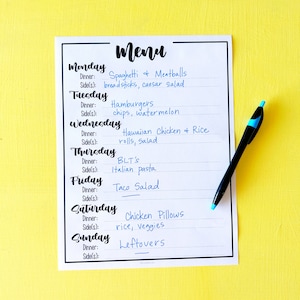 Menu
Monday
Dinner: Spaghetti & Meatballs
Side(s): breadsticks, caesar salad
Tuesday
Dinner: Hamburgers
Side(s): chips, watermelon
Wednesday
Dinner: Hawaiian Chicken & Rice
Side(s): rolls, salad
Thursday
Dinner: BLT's
Side(s): Italian pasta
Friday
Dinner: Taco Salad
Side(s):
Saturday
Dinner: Chicken Pillows
Side(s): rice, veggies
Sunday
Dinner: Leftovers
Side(s):